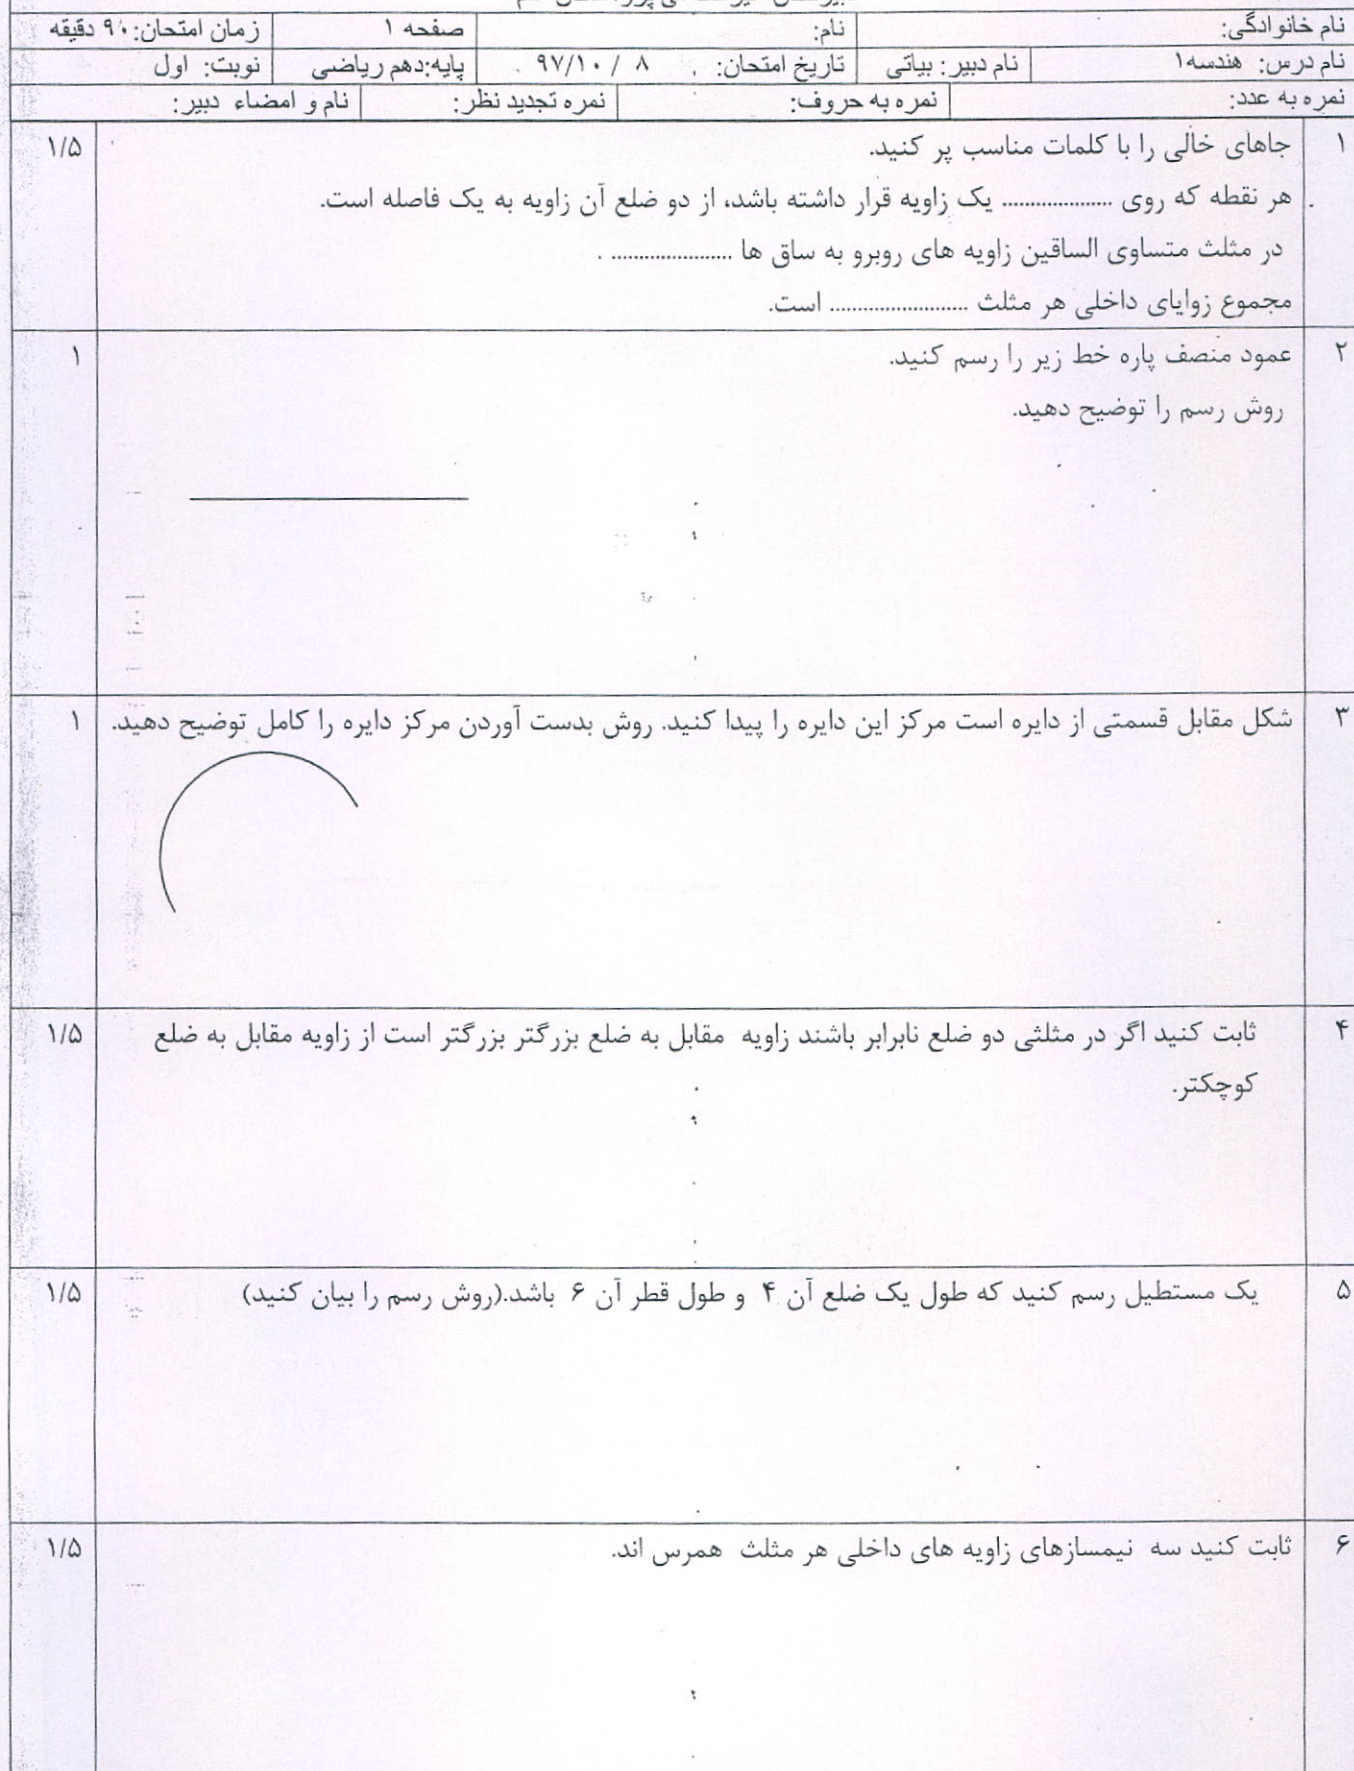 نام خانوادگی: نام: صفحه ۱ زمان امتحان: ۹۰ دقیقه
نام درس: هندسه۱ نام دبیر: بیاتی تاریخ امتحان: ۸ / ۹۷/۱۰ پایه:دهم ریاضی نوبت: اول
نمره به عدد: نمره به حروف: نمره تجدید نظر: نام و امضاء دبیر:
۱ جاهای خالی را با کلمات مناسب پر کنید. ۱/۵
هر نقطه که روی .................... یک زاویه قرار داشته باشد، از دو ضلع آن زاویه به یک فاصله است.
در مثلث متساوی الساقین زاویه های روبرو به ساق ها ...................... .
مجموع زوایای داخلی هر مثلث ......................... است.
۲ عمود منصف پاره خط زیر را رسم کنید. ۱
روش رسم را توضیح دهید.
۳ شکل مقابل قسمتی از دایره است مرکز این دایره را پیدا کنید. روش بدست آوردن مرکز دایره را کامل توضیح دهید. ۱
۴ ثابت کنید اگر در مثلثی دو ضلع نابرابر باشند زاویه مقابل به ضلع بزرگتر بزرگتر است از زاویه مقابل به ضلع ۱/۵
کوچکتر.
۵ یک مستطیل رسم کنید که طول یک ضلع آن ۴ و طول قطر آن ۶ باشد.(روش رسم را بیان کنید) ۱/۵
۶ ثابت کنید سه نیمسازهای زاویه های داخلی هر مثلث همرس اند. ۱/۵